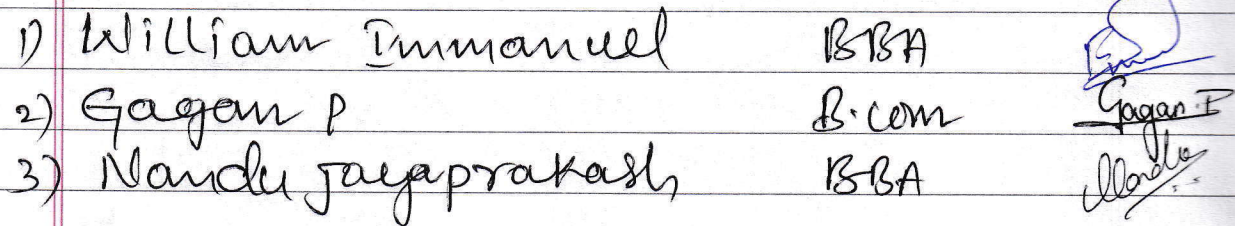 1) William Immanuel BBA
2) Gagan P B.com Gagan.P
3) Nandu Jayaprakash BBA Nandu